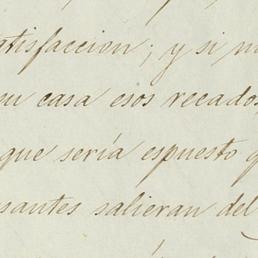 atisfaccion; y si n
su casa esos recados
que sería espuesto q
santes salieran del